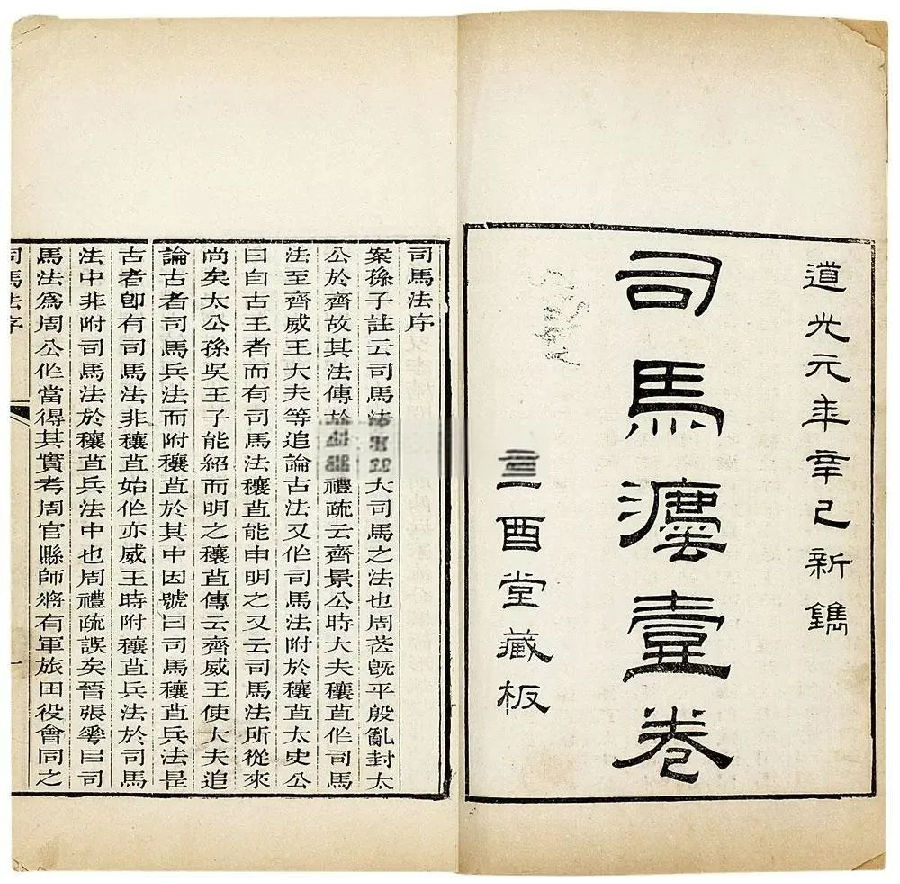 道光元年辛巳新鐫
司馬灋壹卷
二酉堂藏板
司馬法序
案孫子註云司馬法大司馬之法也周武旣平殷亂封太
公於齊故其法傳禮疏云齊景公時大夫穰苴作司馬
法至齊威王大夫等追論古法又作司馬法附於穰苴太史公
曰自古王者而有司馬法穰苴能申明之又云司馬法所從來
尚矣太公孫吳王子能紹而明之穰苴傳云齊威王使大夫追
論古者司馬兵法而附穰苴於其中因號曰司馬穰苴兵法是
古者卽有司馬法非穰苴始作亦威王時附穰苴兵法於司馬
法中非附司馬法於穰苴兵法中也周禮疏誤矣晉張華曰司
馬法爲周公作當得其實考周官縣師將有軍旅田役會同之
司馬法序 一